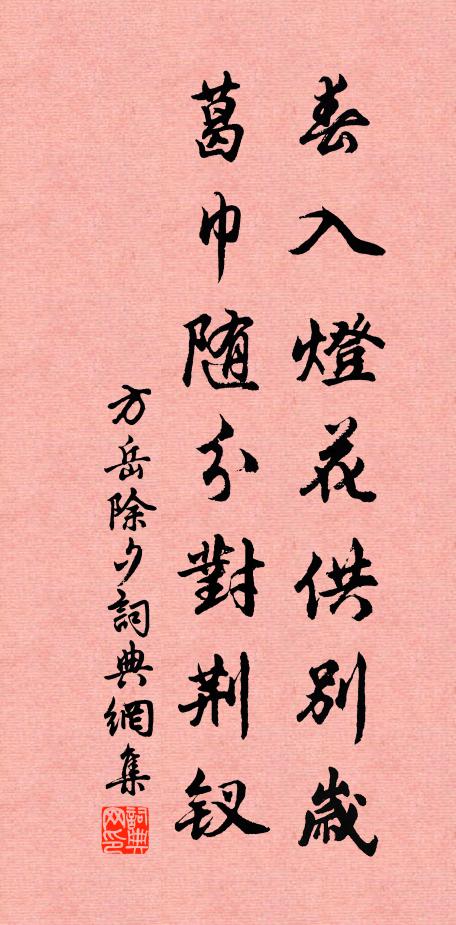 春入燈花供别歲
葛巾随分對荆釵
方岳除夕詞典網集
詞典网印